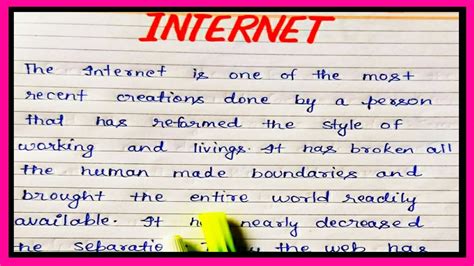 INTERNET
The Internet is one of the most
recent creations done by a person
that has reformed the style of
working and livings. It has broken all
the human made boundaries and
brought the entire world readily
available. It nearly decreased
the web has